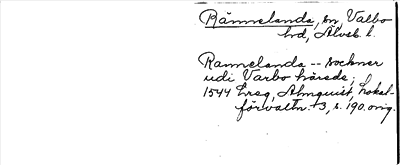 Rännelanda, sn, Valbo
hd, Älvsb. l.
Rannelanda -- sockner
udi Varbo härede;
1544 Ereg, Almquist, Lokal-
förvaltn. 3, s. 190. orig.